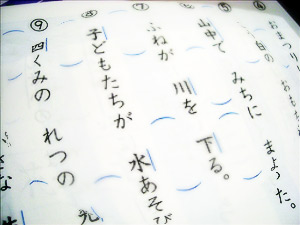 山中で みちに まよった。
⑦ ふねが 川を 下る。
⑧ 子どもたちが 水あそび
⑨ 四くみの れつの 先